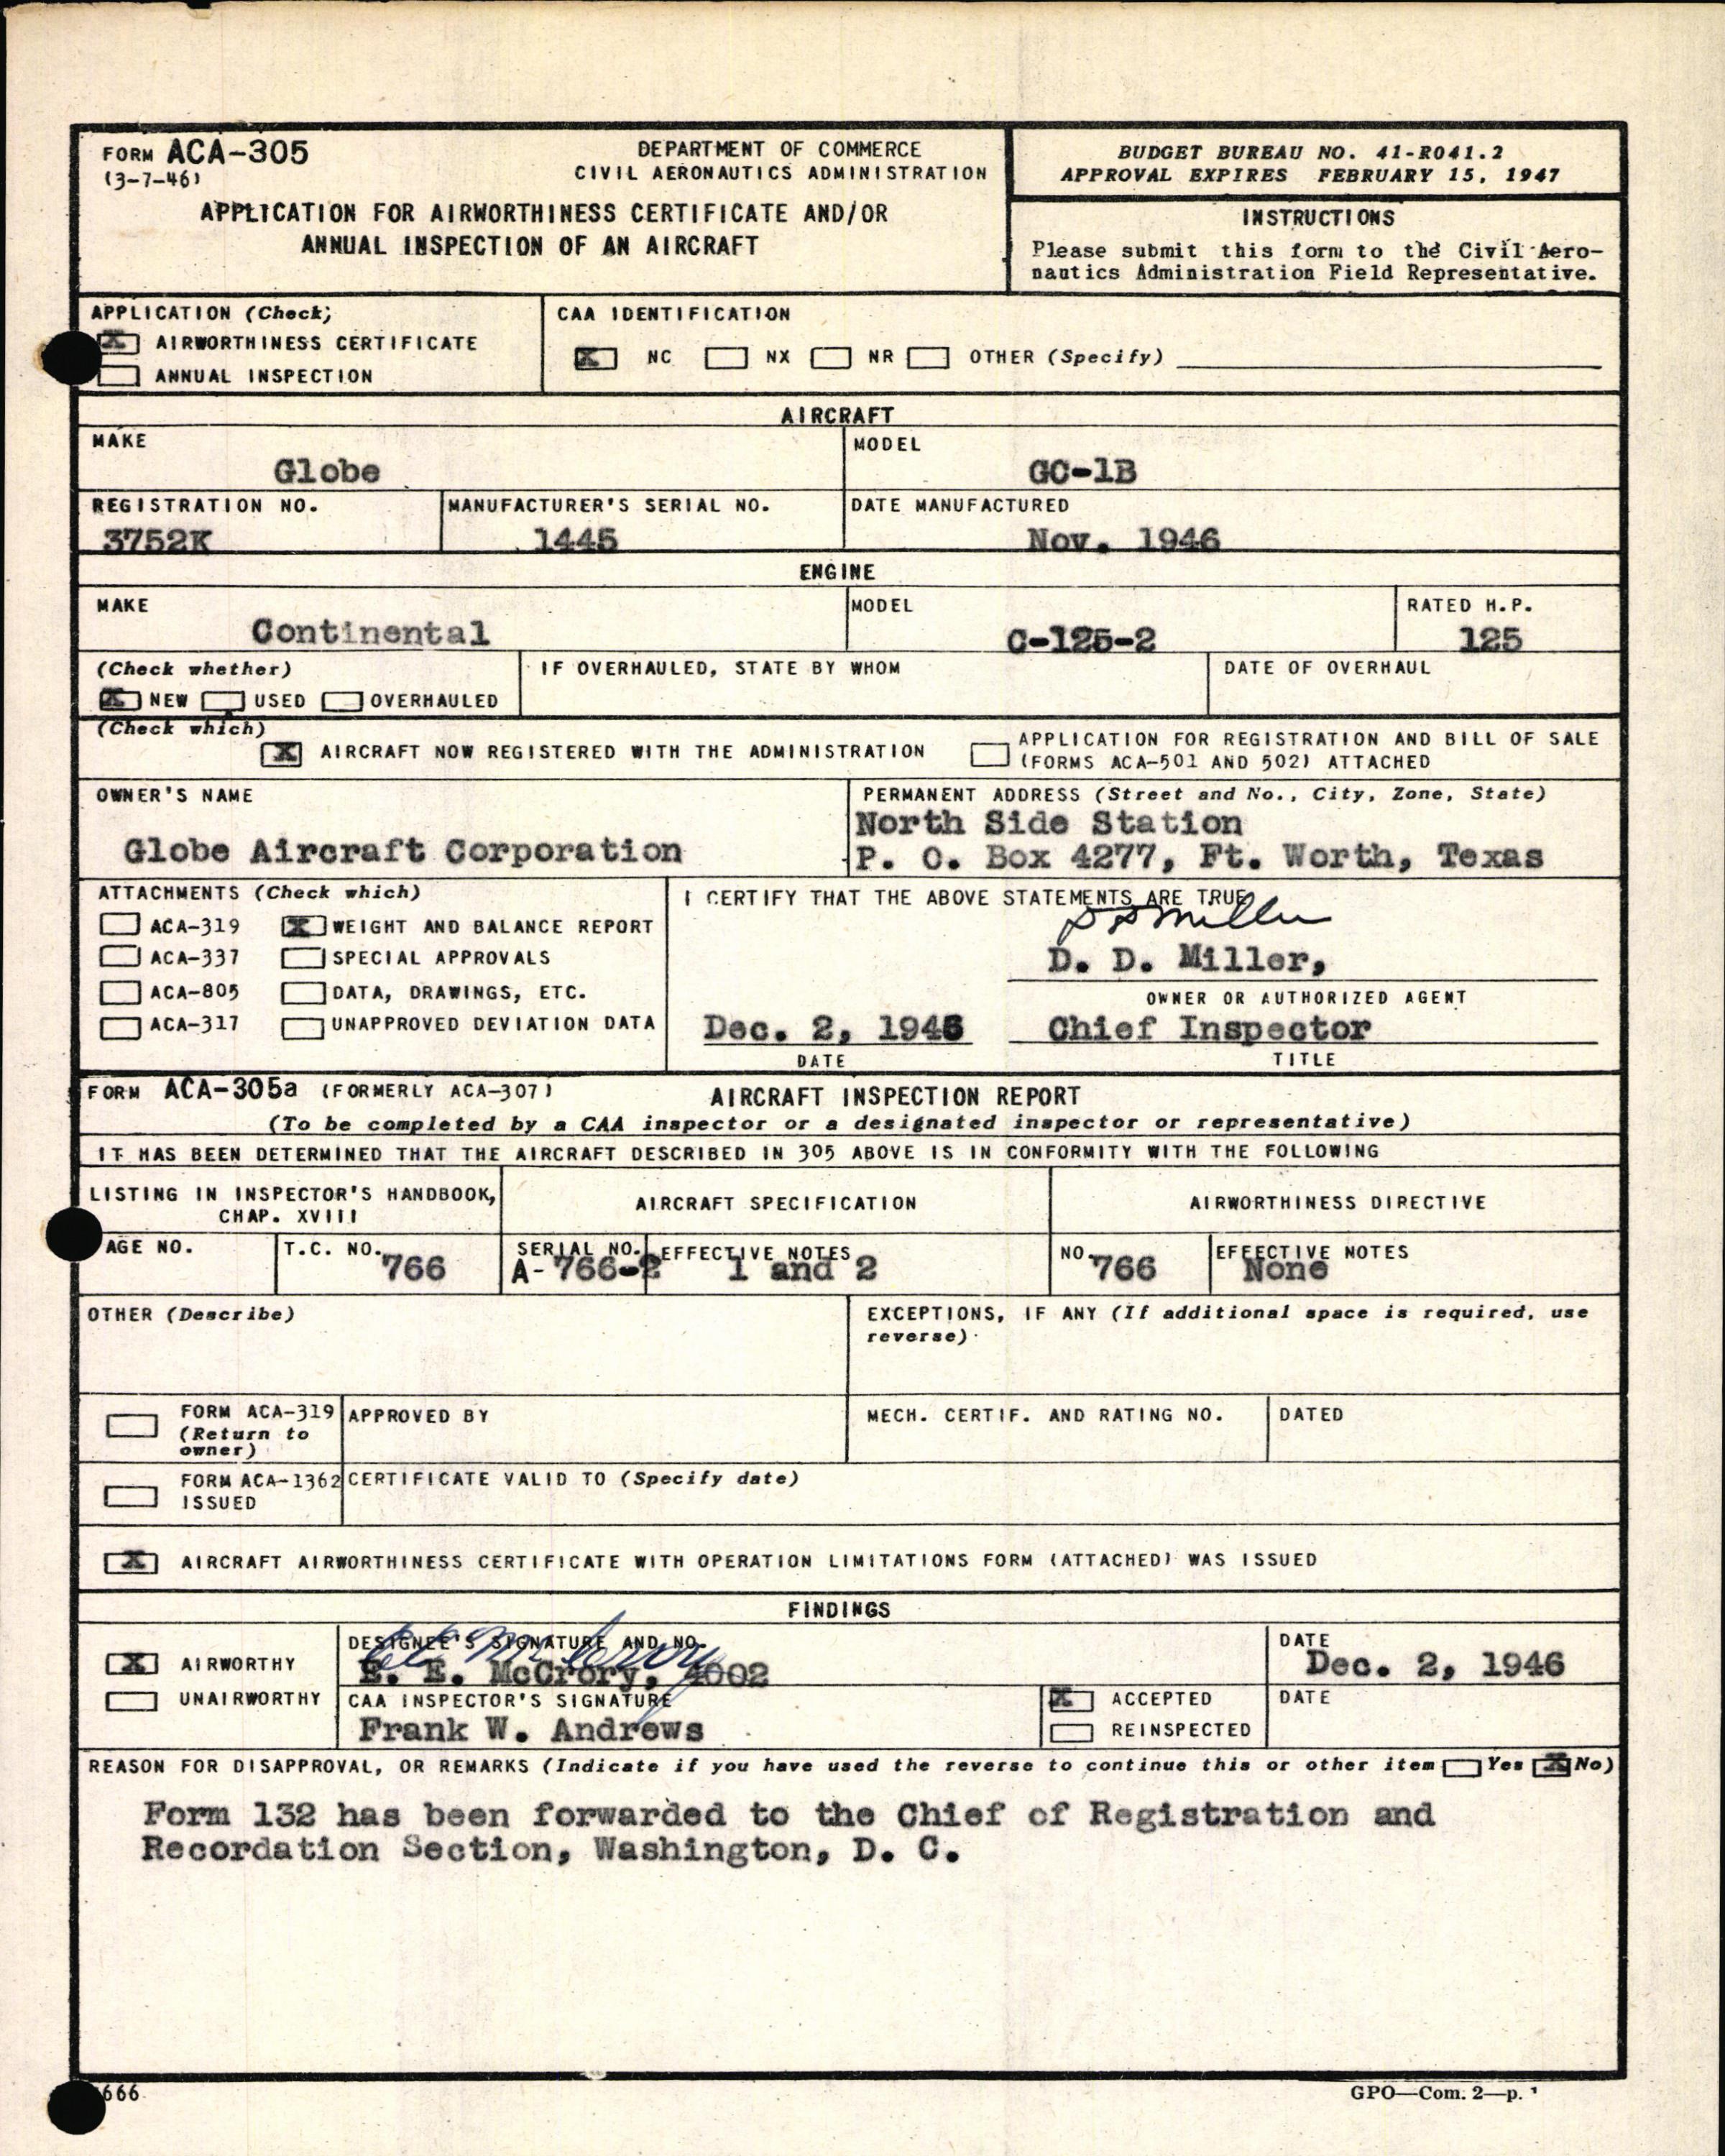 FORM ACA-305
(3-7-46)
DEPARTMENT OF COMMERCE
CIVIL AERONAUTICS ADMINISTRATION
APPLICATION FOR AIRWORTHINESS CERTIFICATE AND/OR
ANNUAL INSPECTION OF AN AIRCRAFT
BUDGET BUREAU NO. 41-R041.2
APPROVAL EXPIRES FEBRUARY 15, 1947
INSTRUCTIONS
Please submit this form to the Civil Aero-
nautics Administration Field Representative.
APPLICATION (Check)
X AIRWORTHINESS CERTIFICATE
ANNUAL INSPECTION
CAA IDENTIFICATION
X NC NX NR OTHER (Specify)
AIRCRAFT
MAKE
Globe
MODEL
GC-1B
REGISTRATION NO.
3752K
MANUFACTURER'S SERIAL NO.
1445
DATE MANUFACTURED
Nov. 1946
ENGINE
MAKE
Continental
MODEL
C-125-2
RATED H.P.
125
(Check whether)
X NEW USED OVERHAULED
IF OVERHAULED, STATE BY WHOM
DATE OF OVERHAUL
(Check which)
X AIRCRAFT NOW REGISTERED WITH THE ADMINISTRATION
APPLICATION FOR REGISTRATION AND BILL OF SALE
(FORMS ACA-501 AND 502) ATTACHED
OWNER'S NAME
Globe Aircraft Corporation
PERMANENT ADDRESS (Street and No., City, Zone, State)
North Side Station
P. O. Box 4277, Ft. Worth, Texas
ATTACHMENTS (Check which)
ACA-319 X WEIGHT AND BALANCE REPORT
ACA-337 SPECIAL APPROVALS
ACA-805 DATA, DRAWINGS, ETC.
ACA-317 UNAPPROVED DEVIATION DATA
I CERTIFY THAT THE ABOVE STATEMENTS ARE TRUE
D D Miller
D. D. Miller,
OWNER OR AUTHORIZED AGENT
Dec. 2, 1946 Chief Inspector
DATE TITLE
FORM ACA-305a (FORMERLY ACA-307) AIRCRAFT INSPECTION REPORT
(To be completed by a CAA inspector or a designated inspector or representative)
IT HAS BEEN DETERMINED THAT THE AIRCRAFT DESCRIBED IN 305 ABOVE IS IN CONFORMITY WITH THE FOLLOWING
LISTING IN INSPECTOR'S HANDBOOK,
CHAP. XVIII
AIRCRAFT SPECIFICATION
AIRWORTHINESS DIRECTIVE
AGE NO.
T.C. NO. 766
SERIAL NO.
A- 766-2
EFFECTIVE NOTES
1 and 2
NO. 766
EFFECTIVE NOTES
None
OTHER (Describe)
EXCEPTIONS, IF ANY (If additional space is required, use
reverse)
FORM ACA-319
(Return to
owner)
APPROVED BY
MECH. CERTIF. AND RATING NO.
DATED
FORM ACA-1362
ISSUED
CERTIFICATE VALID TO (Specify date)
X AIRCRAFT AIRWORTHINESS CERTIFICATE WITH OPERATION LIMITATIONS FORM (ATTACHED) WAS ISSUED
FINDINGS
X AIRWORTHY
UNAIRWORTHY
DESIGNEE'S SIGNATURE AND NO.
E. E. McCrory, 4002
DATE
Dec. 2, 1946
CAA INSPECTOR'S SIGNATURE
Frank W. Andrews
X ACCEPTED
REINSPECTED
DATE
REASON FOR DISAPPROVAL, OR REMARKS (Indicate if you have used the reverse to continue this or other item Yes X No)
Form 132 has been forwarded to the Chief of Registration and
Recordation Section, Washington, D. C.
666
GPO—Com. 2—p.